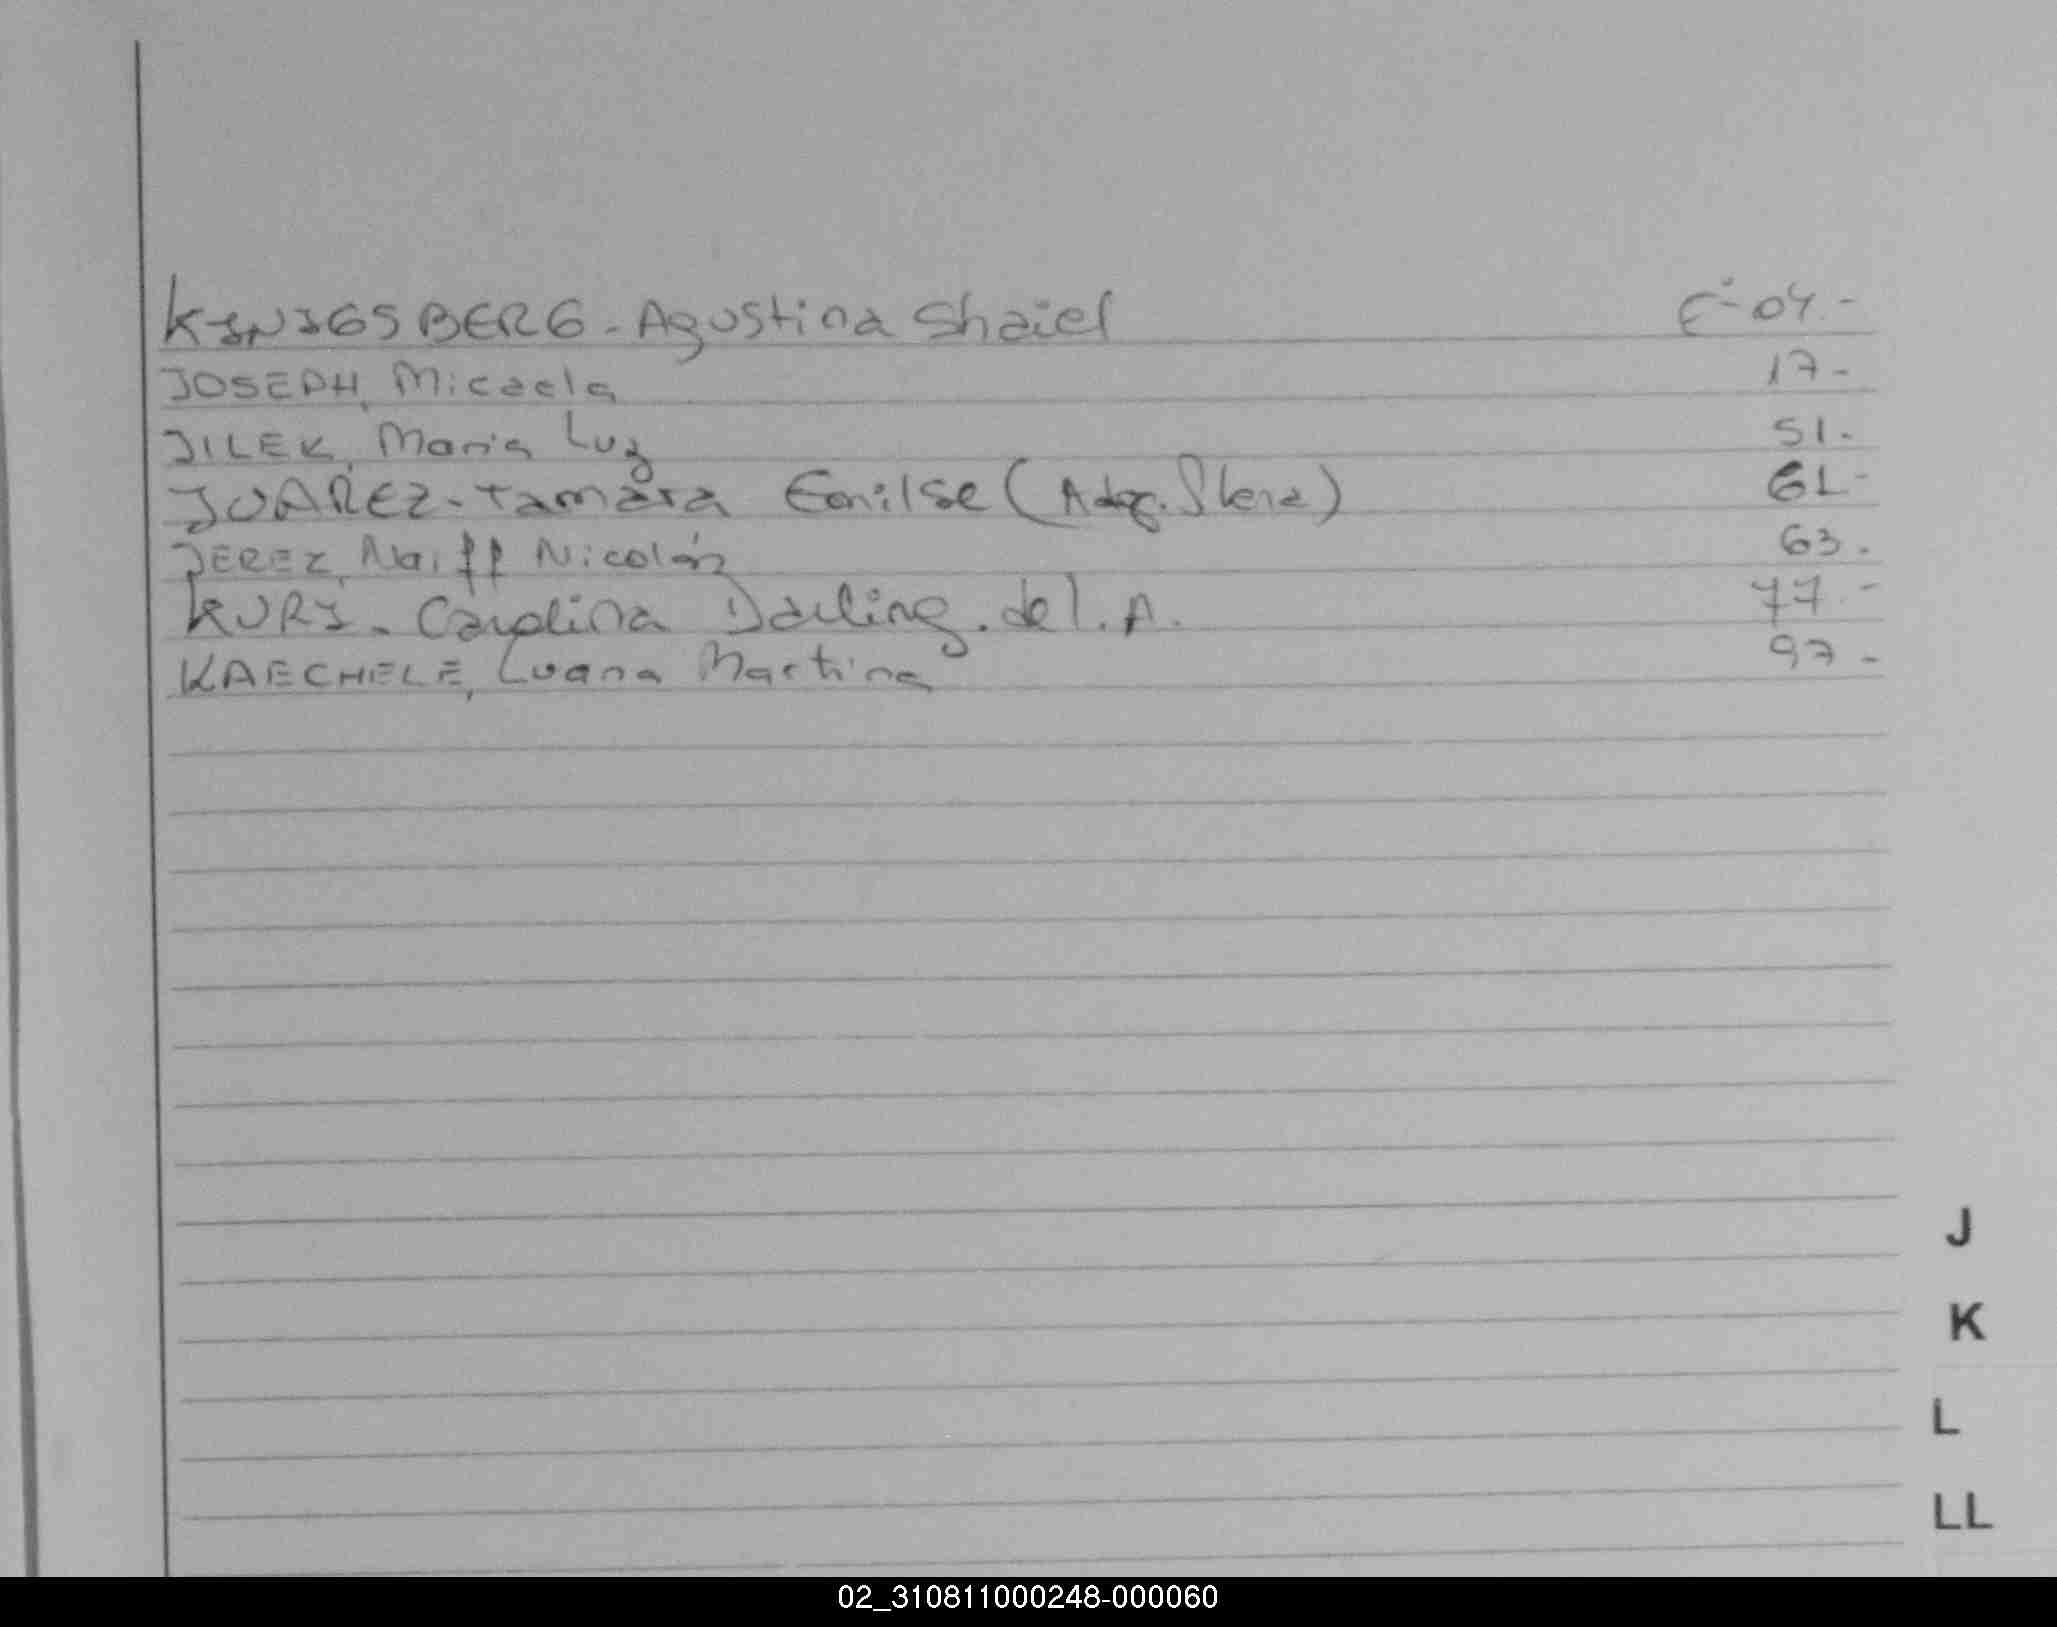 KINIGSBERG - Agustina Shaiel Fº 04.-
JOSEPH, Micaela 17-
JILEK, Maria Luz 51.-
JUAREZ - Tamara Emilse ( 61-
JEREZ, Naiff Nicolás 63.
KURI - Carolina Darling. del. A. 77.-
KAECHELE, Luana Martina 97-
J
K
L
LL
02_310811000248-000060